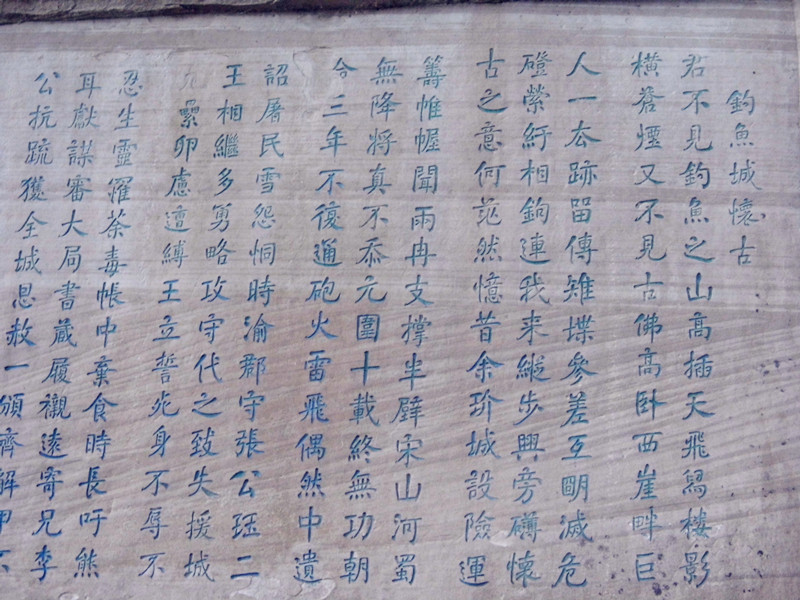 釣魚城懷古
君不見釣魚之山高插天飛舃樓影
橫蒼煙又不見古佛高卧西崖畔巨
人一去跡留傳雉堞參差互明滅危
磴縈紆相鉤連我來縱步興旁礡懷
古之意何茫然憶昔余玠城設險運
籌帷幄聞雨冉支撐半壁宋山河蜀
無降將真不忝元圍十載終無功朝
合三年不復通砲火雷飛偶然中遺
詔屠民雪怨恫時渝郡守張公珏二
王相繼多勇略攻守代之致失援城
累卵慮遭縛王立誓死身不辱不
忍生靈罹荼毒帳中棄食時長吁熊
耳獻謀審大局書藏履襯遠寄兄李
公抗疏獲全城恩赦一頒齊解甲